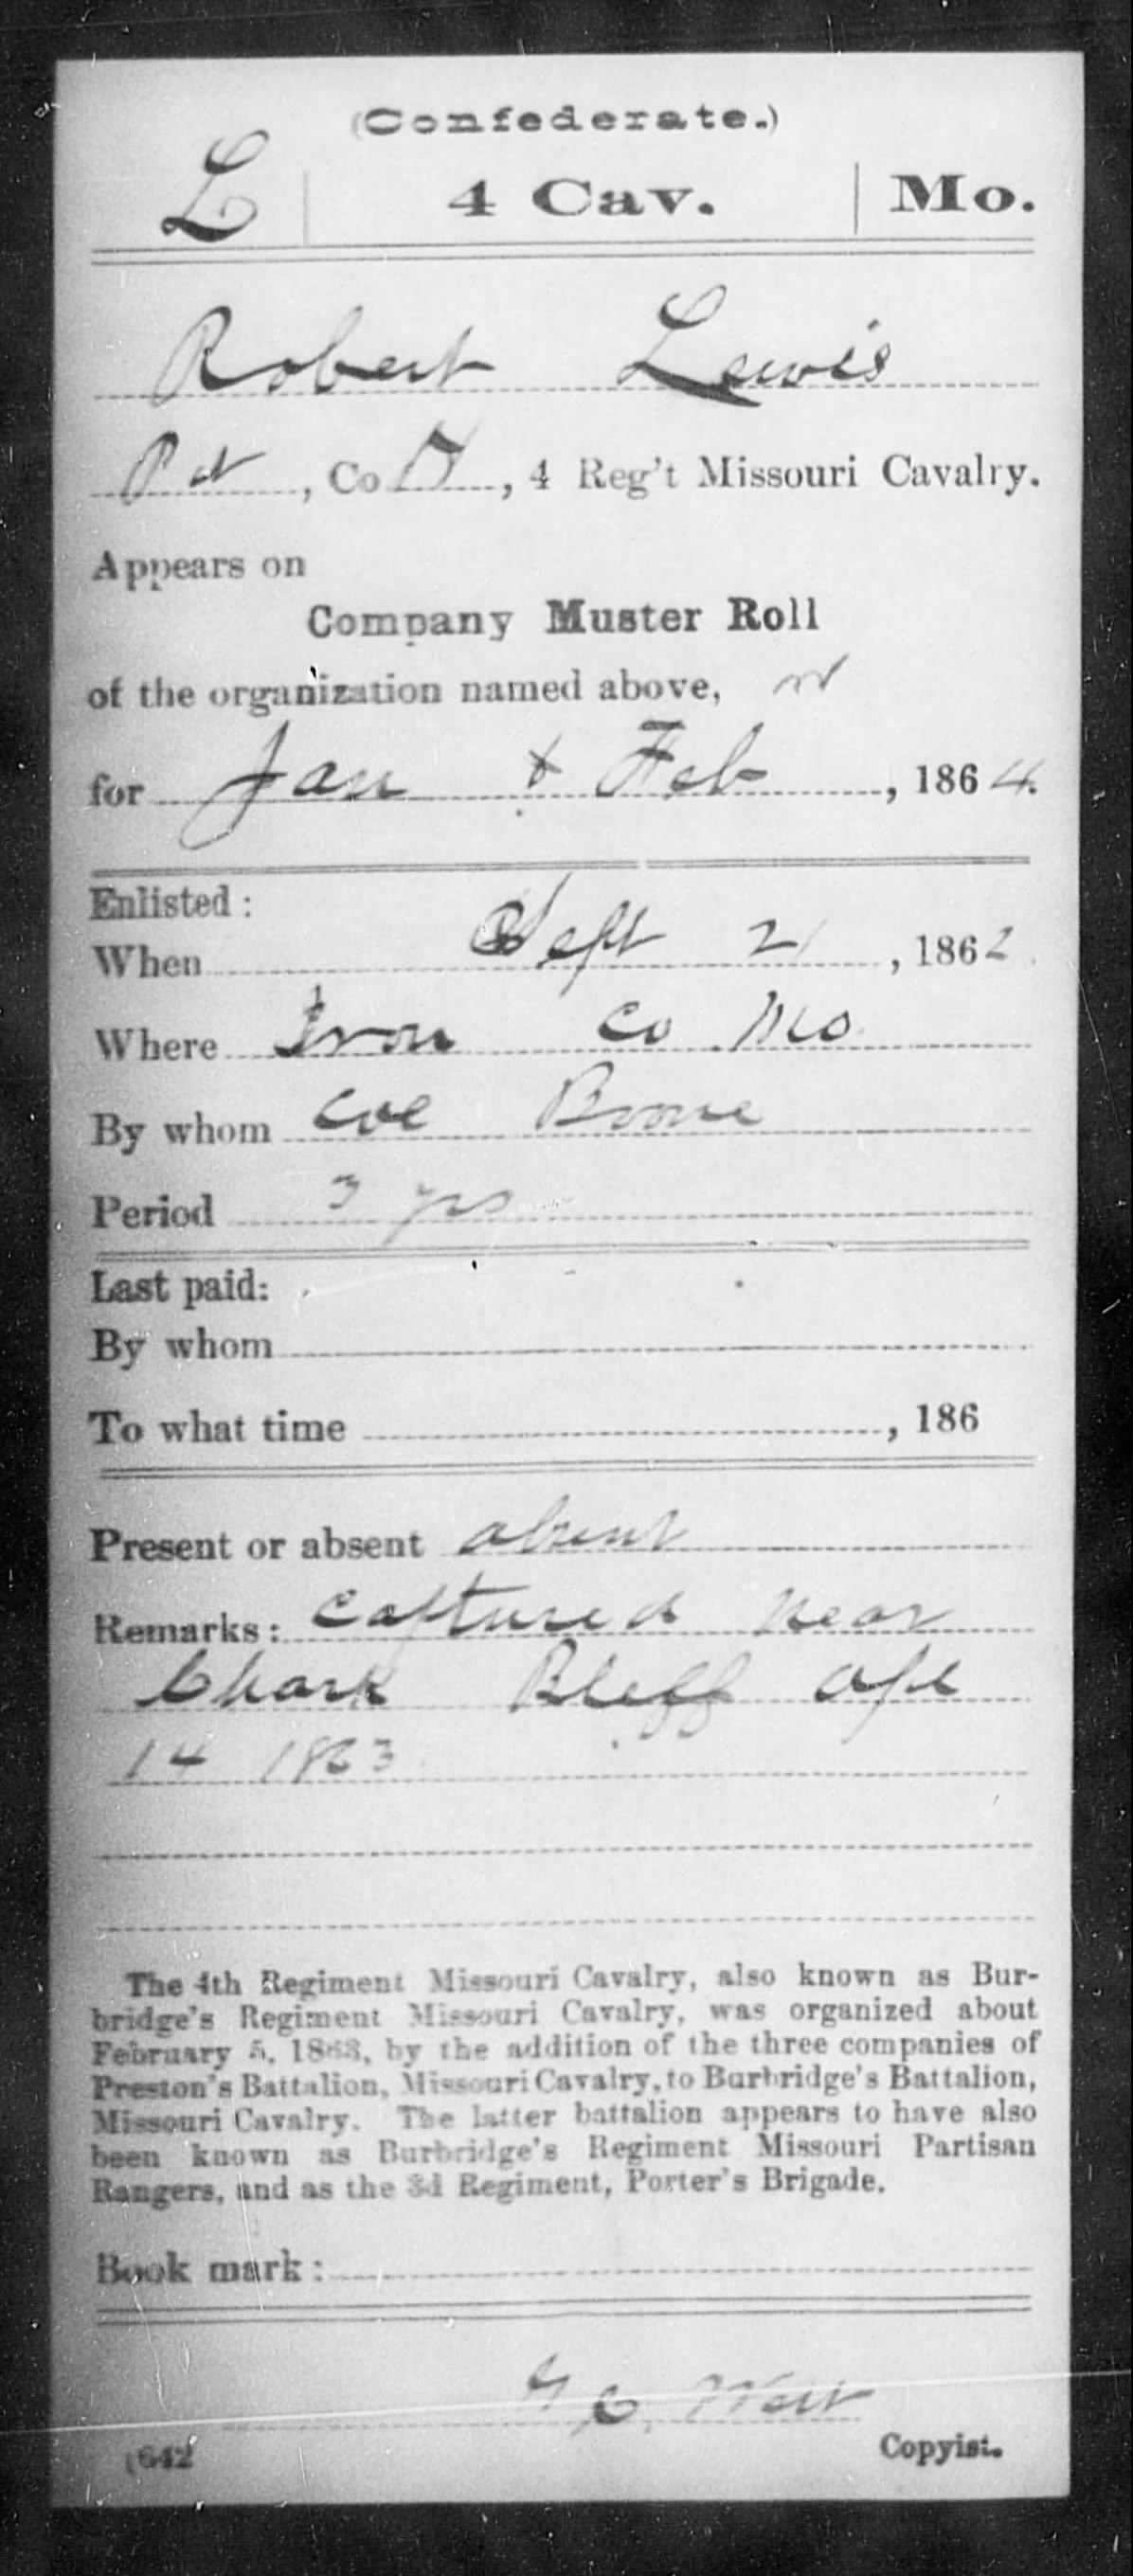 (Confederate.)
L | 4 Cav. | Mo.
Robert Lewis
Pvt, Co , 4 Reg't Missouri Cavalry.
Appears on
Company Muster Roll
of the organization named above,
for Jan & Feb, 1864.
Enlisted:
When Sept 21, 1862.
Where Iron Co Mo.
By whom Col Boone
Period 3 yrs
Last paid:
By whom
To what time , 186
Present or absent absent
Remarks: Captured near
Chark Bleff Apl
14 1863
The 4th Regiment Missouri Cavalry, also known as Bur-
bridge's Regiment Missouri Cavalry, was organized about
February 5, 1863, by the addition of the three companies of
Preston's Battalion, Missouri Cavalry, to Burbridge's Battalion,
Missouri Cavalry. The latter battalion appears to have also
been known as Burbridge's Regiment Missouri Partisan
Rangers, and as the 3d Regiment, Porter's Brigade.
Book mark:
(642
Copyist.